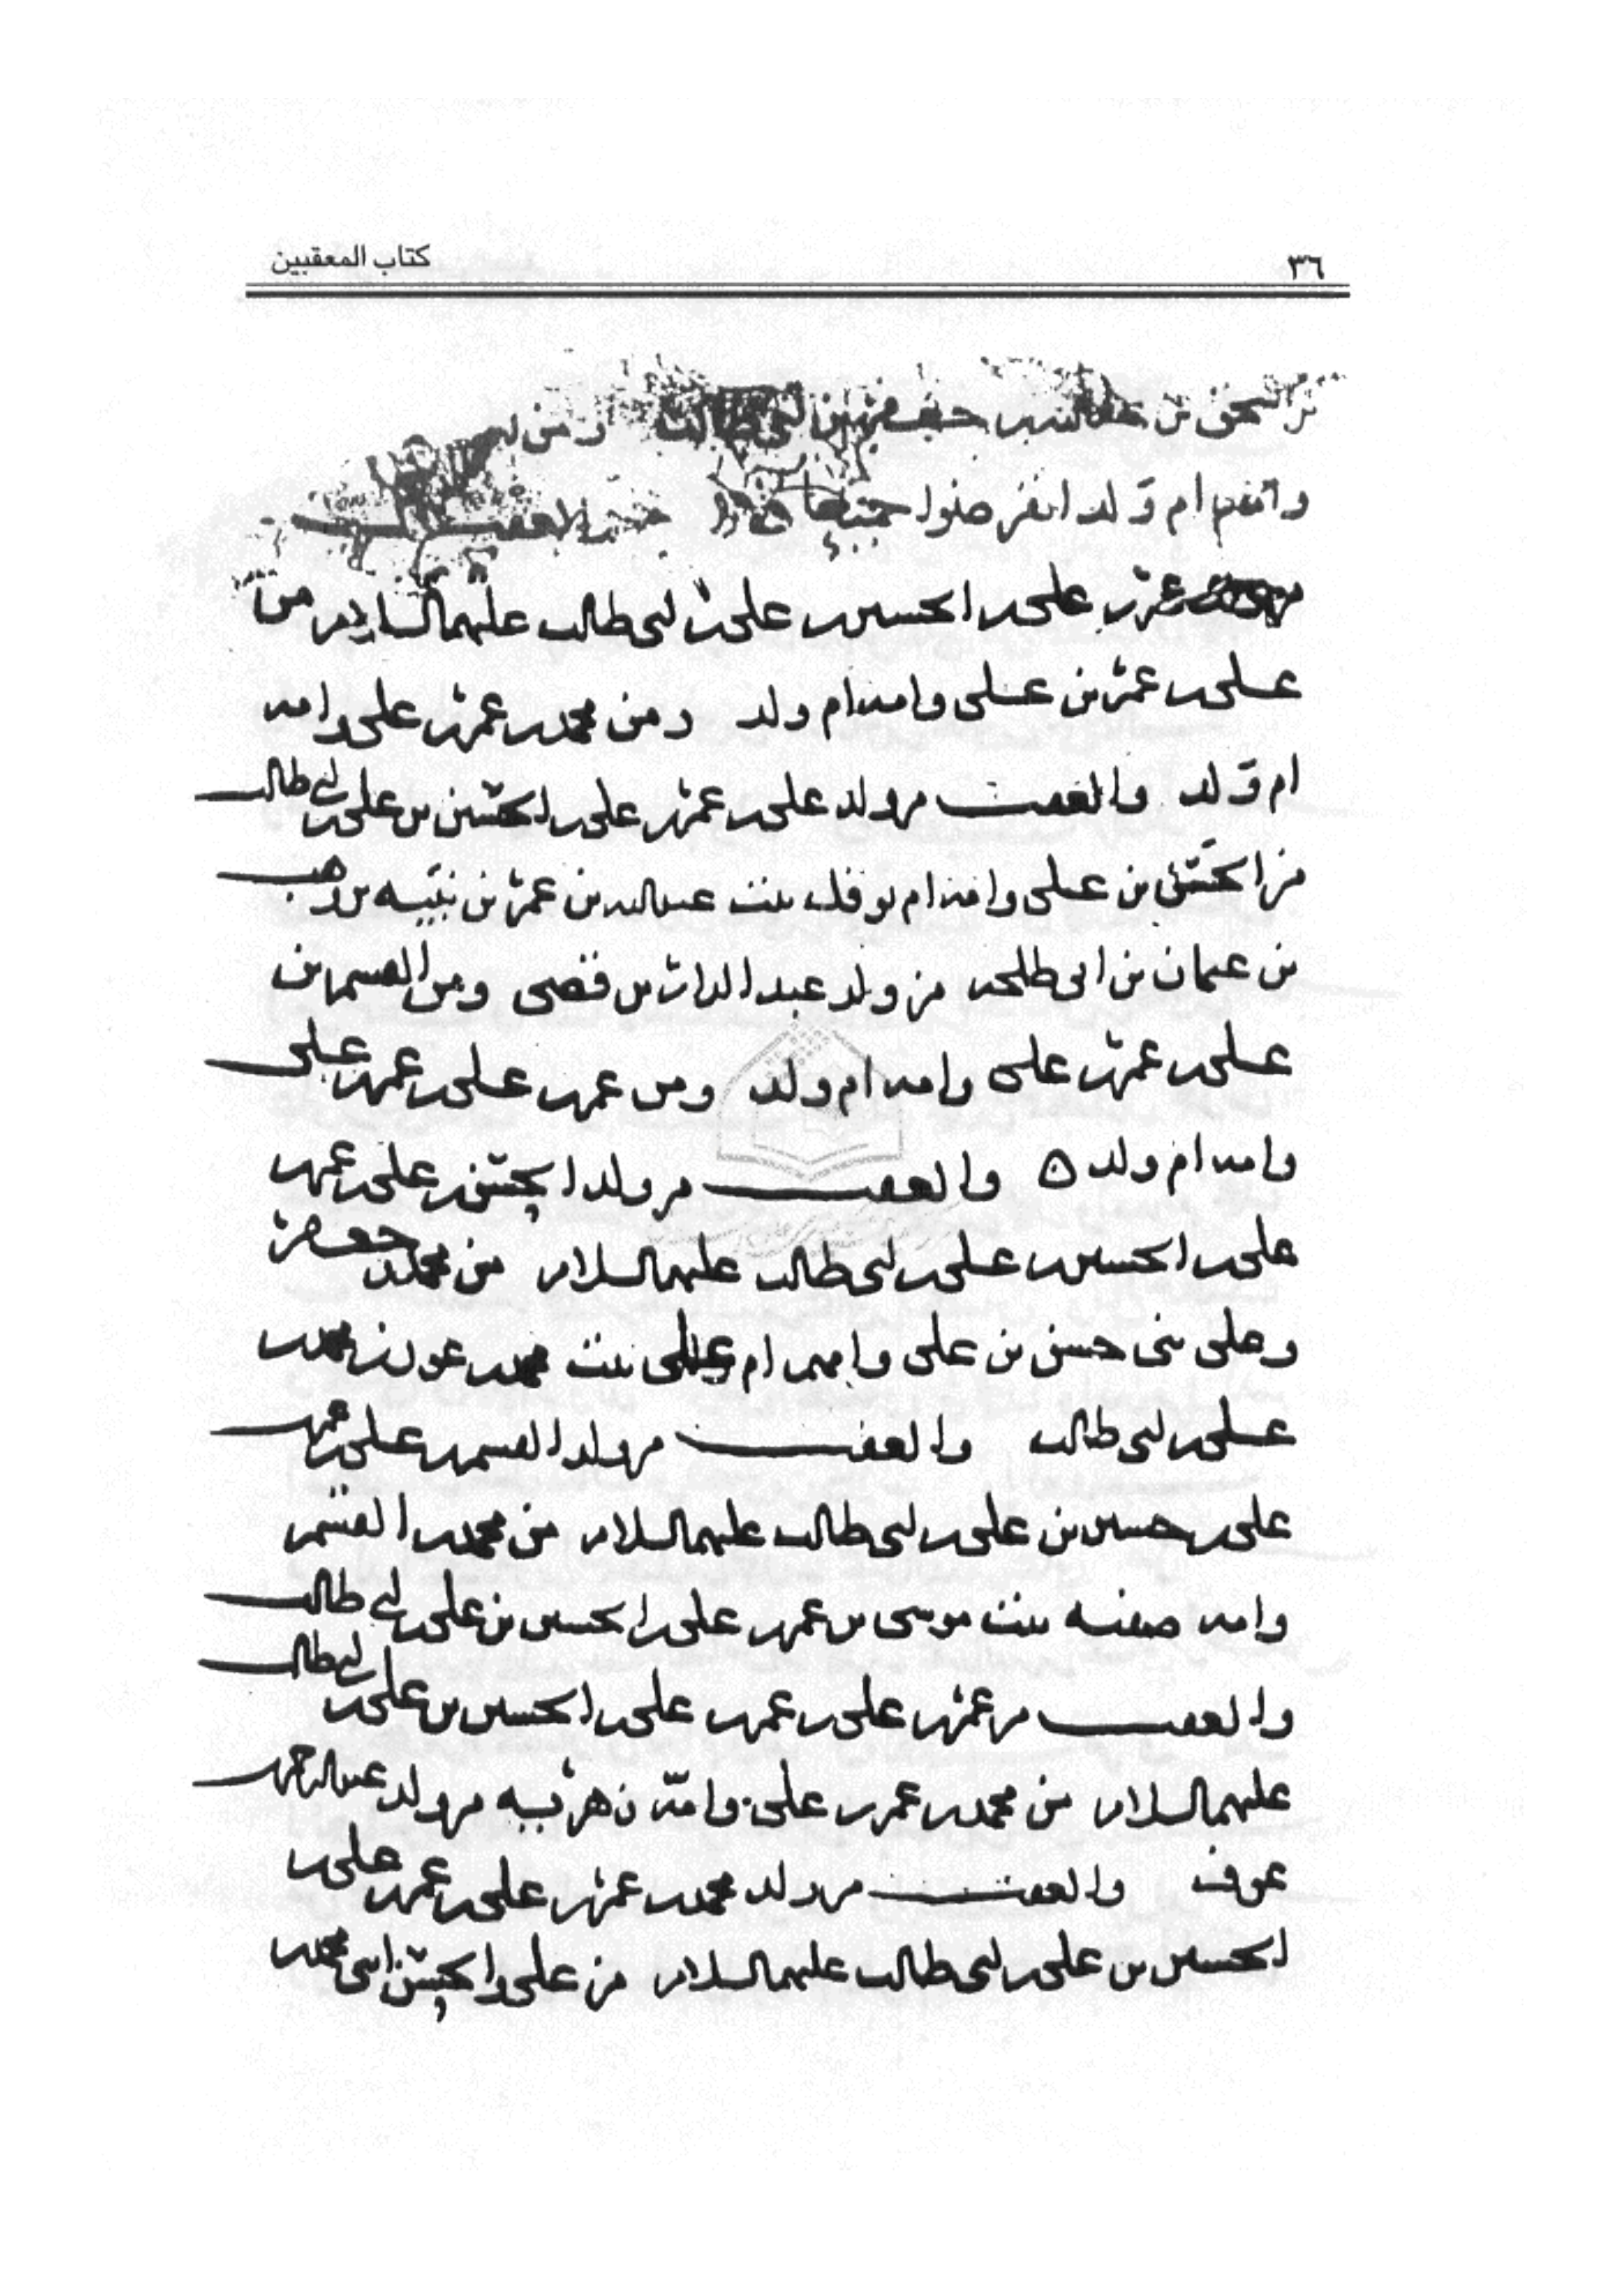 ٣٦ كتاب المعقبين
بن اسحق بن عبدالله بن جعفر بن ابى طالب ومن
وامهم ام ولد انقرضوا جميعا
عمر بن على بن الحسين بن على بن ابى طالب عليهما السلام من
على بن عمر بن على وامه ام ولد ومن محمد بن عمر بن على وامه
ام ولد والعقب من ولد على بن عمر بن على بن الحسين بن على بن ابى طالب
من الحسن بن على وامه ام نوفل بنت عبدالله بن عمر بن نبيه بن وهب
بن عثمان بن ابى طلحه من ولد عبد الدار بن قصى ومن القسم بن
على بن عمر بن على وامه ام ولد ومن عمر بن على بن عمر بن على
وامه ام ولد ٥ والعقب من ولد الحسن بن على بن عمر
على بن الحسين بن على بن ابى طالب عليهما السلام من محمد وجعفر
وعلى بنى حسن بن على وامهم ام على بنت محمد بن عون بن محمد بن
على بن ابى طالب والعقب من ولد القسم بن على بن عمر بن
على بن حسين بن على بن ابى طالب عليهما السلام من محمد بن القسم
وامه صفيه بنت موسى بن عمر بن على بن الحسين بن على بن ابى طالب
والعقب من عمر بن على بن عمر بن على بن الحسين بن على بن ابى طالب
عليهما السلام من محمد بن عمر بن على وامه زهريه من ولد عبدالرحمن بن
عوف والعقب من ولد محمد بن عمر بن على بن عمر بن على بن
الحسين بن على بن ابى طالب عليهما السلام من على والحسن ابنى محمد بن